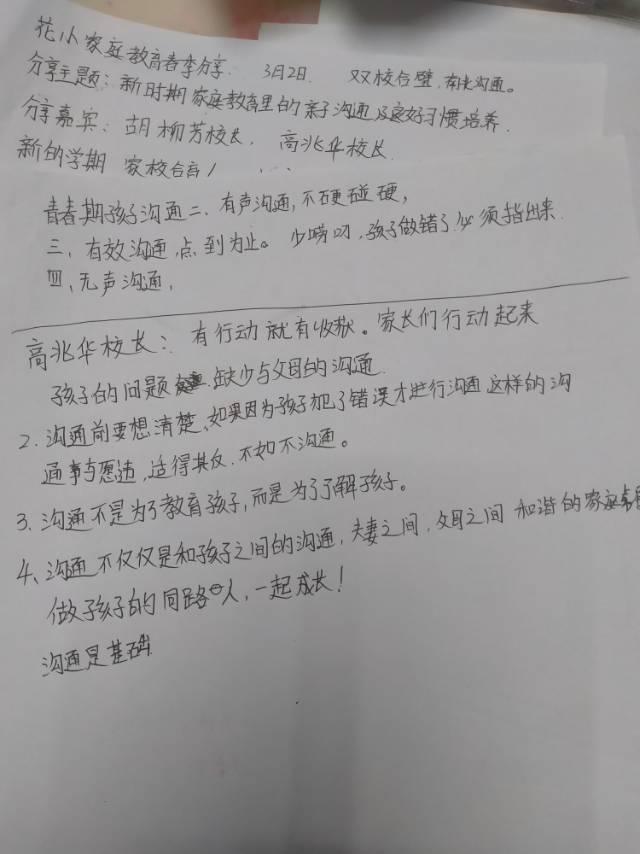 花小家庭教育春季分享. 3月2日. 双校合璧,有光沟通。
分享主题:新时期家庭教育里的亲子沟通及良好习惯培养.
分享嘉宾:胡柳芳校长, 高兆华校长
新的学期 家校合育!
青春期孩子沟通二、有声沟通,不硬碰硬,
三、有效沟通,点到为止。少唠叨,孩子做错了必须指出来.
四、无声沟通,
高兆华校长:有行动就有收获。家长们行动起来
孩子的问题 缺少与父母的沟通.
2.沟通前要想清楚,如果因为孩子犯了错误才进行沟通 这样的沟
通事与愿违,适得其反.不如不沟通。
3.沟通不是为了教育孩子,而是为了了解孩子。
4、沟通不仅仅是和孩子之间的沟通,夫妻之间,父母之间 和谐的家庭
做孩子的同路人,一起成长!
沟通是基础